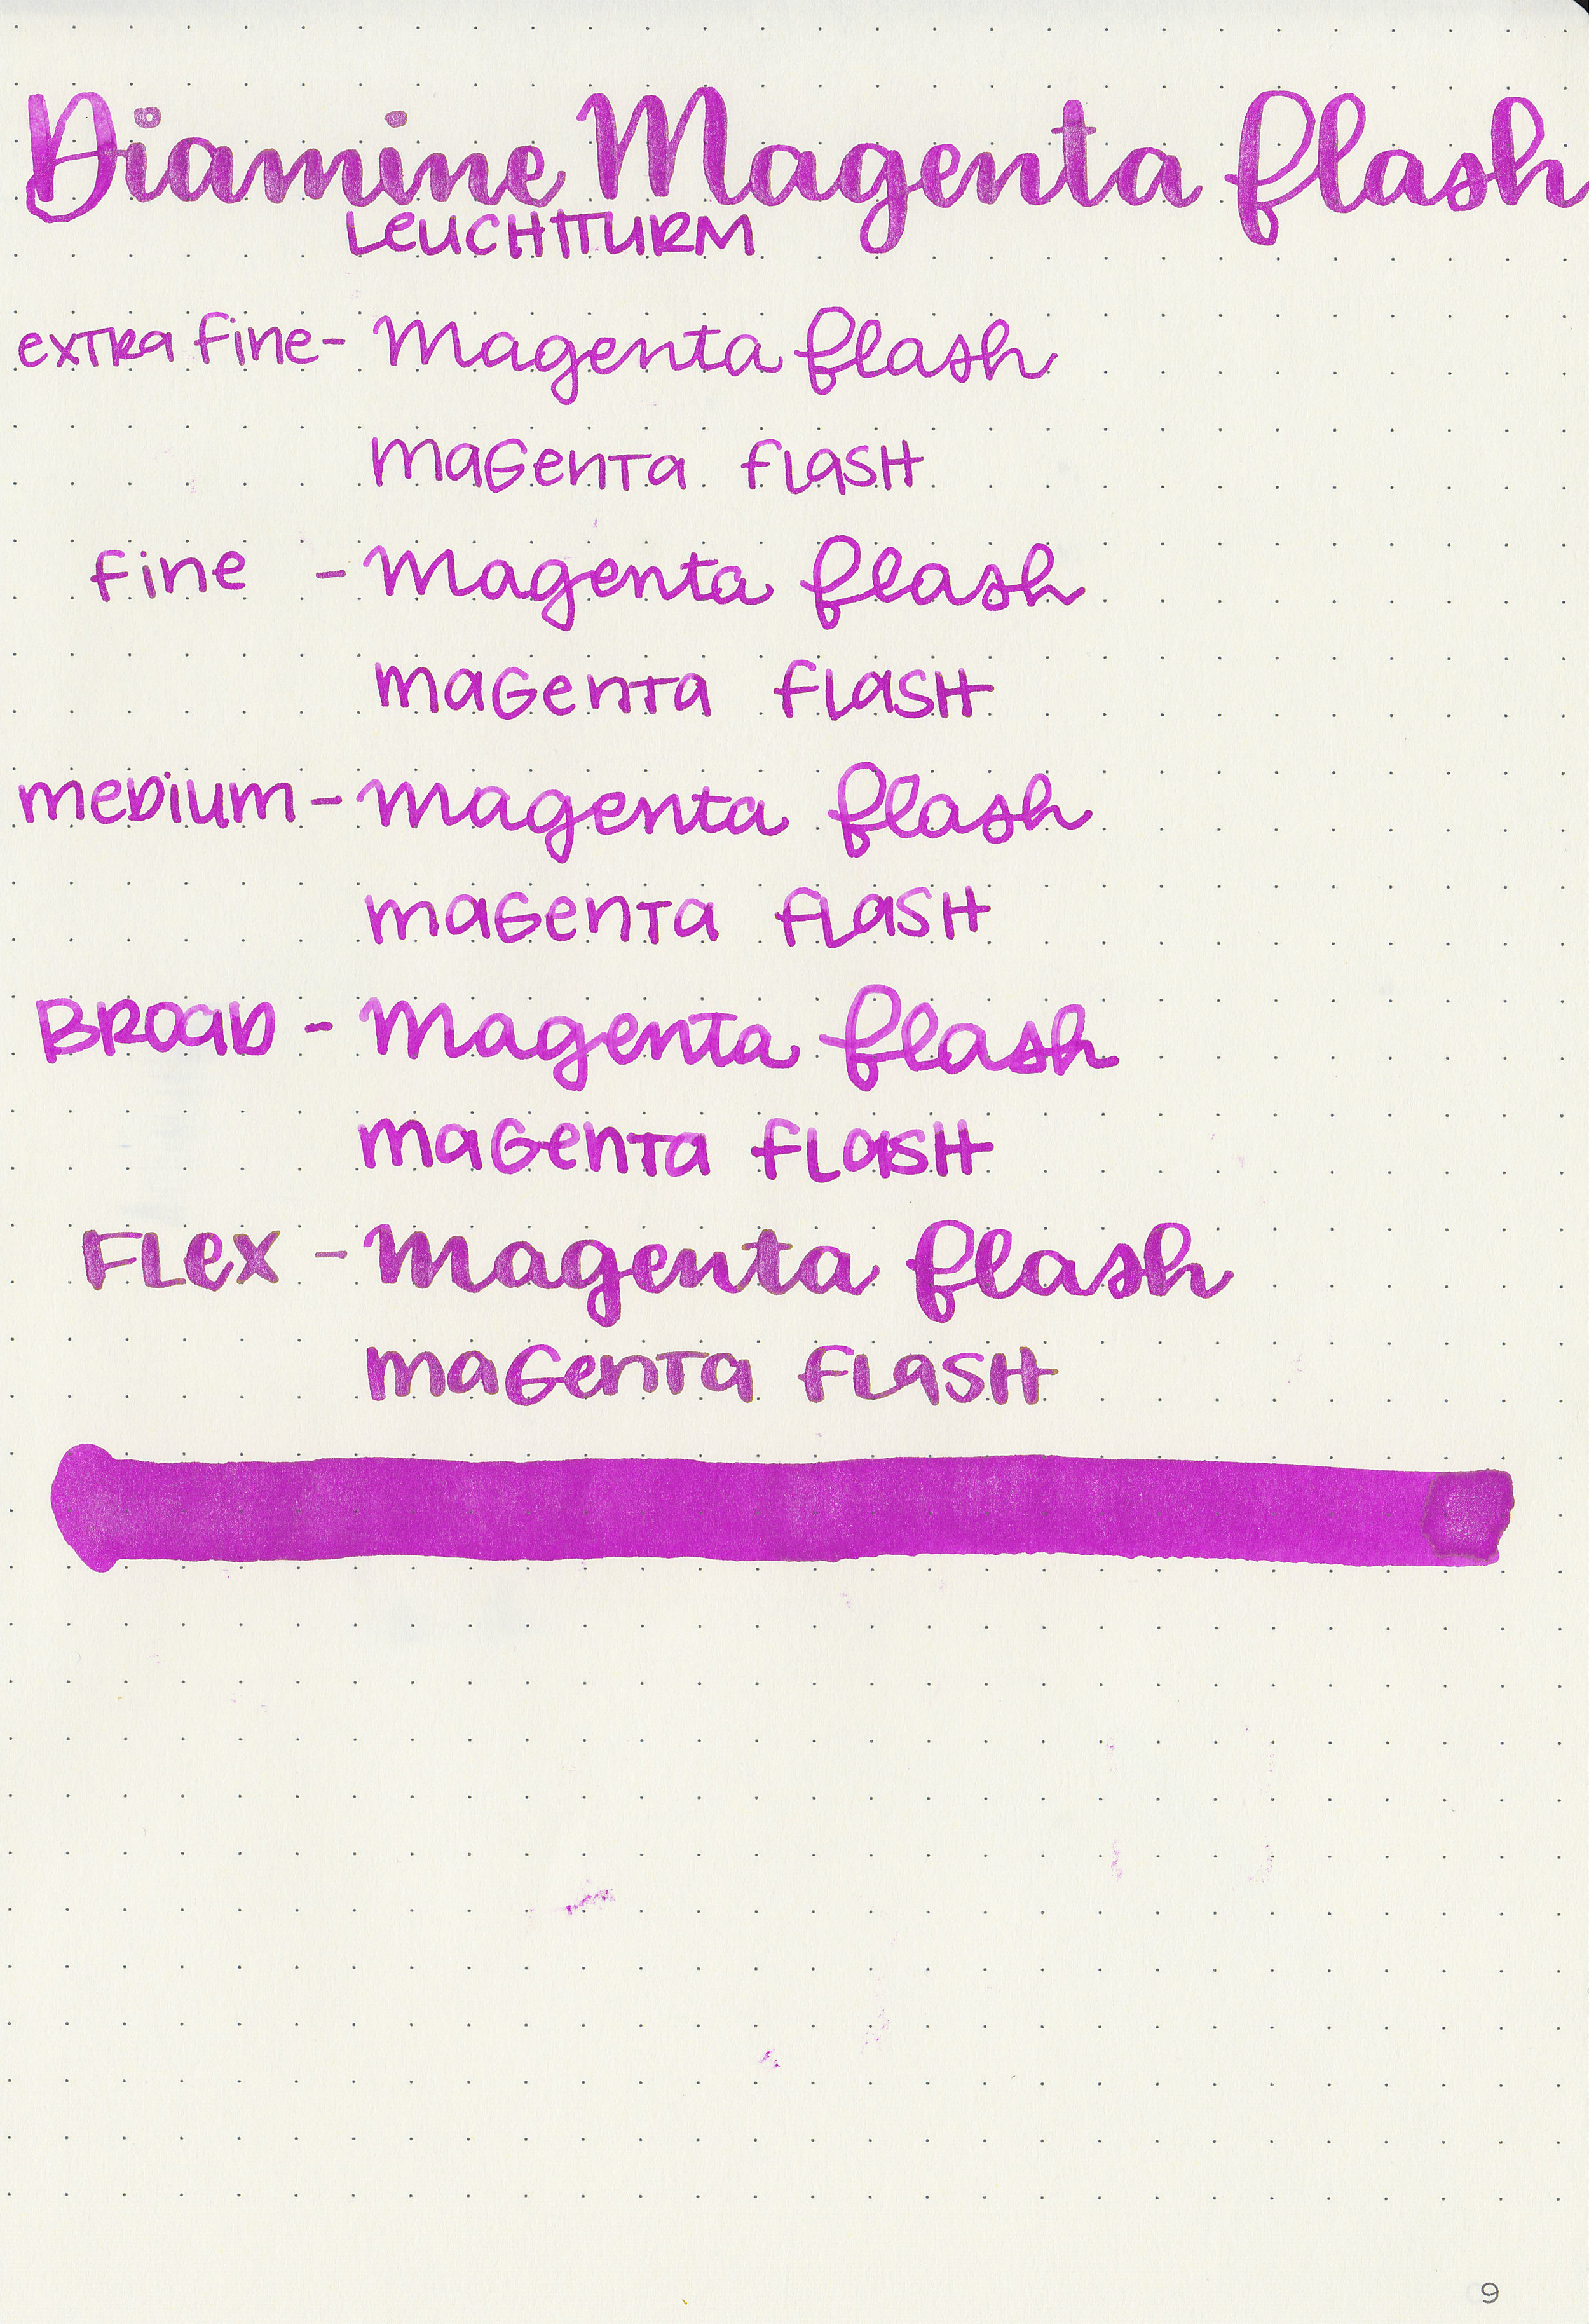 Diamine Magenta flash
LeUCHTTURM
exTRa fine - Magenta flash
maGenTa fLaSH
fine - Magenta flash
maGenTa fLaSH
meDium - Magenta flash
maGenTa fLaSH
BROaD - Magenta flash
maGenTa fLaSH
FLex - Magenta flash
maGenTa fLaSH
9